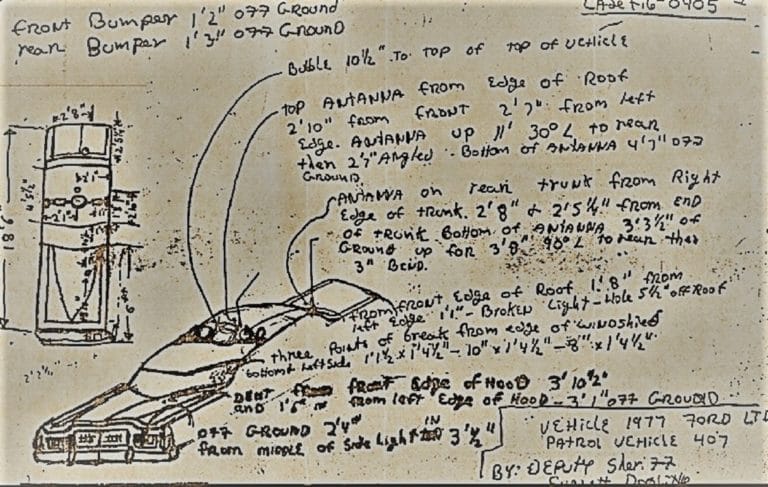 Front Bumper 1'2" off Ground
rear Bumper 1'3" off Ground
CASE F16-0405
Buble 10½" To top of top of vehicle
top ANTANNA from Edge of Roof
2'10" from FRONT 2'7" from left
Edge. ANTANNA up 11" 30° L to rear
then 2'7" Angled - Bottom of ANTANNA 4'7" off
Ground
ANTANNA on rear trunk from Right
Edge of trunk. 2'8" & 2'5¼" from END
of trunk Bottom of ANTANNA 3'3½" off
Ground up for 3'8" 90° L to rear then
3" Bend.
from front Edge of Roof 1'8" from
left Edge 1'1" - Broken Light - Hole 5½" off Roof
three Points of break from edge of windshield
bottom & Left Side 1'1½" x 1'4½" - 10" x 1'4½" - 8" x 1'4½"
DENT from front Edge of Hood 3'10½"
and 1'6" from left Edge of Hood - 3'1" off Ground
off Ground 2'4"
from middle of Side Light IN 3'½"
VEHICLE 1977 FORD LTD
PATROL VEHICLE 407
BY: DEPUTY Sheriff
2'8"
4'5½"